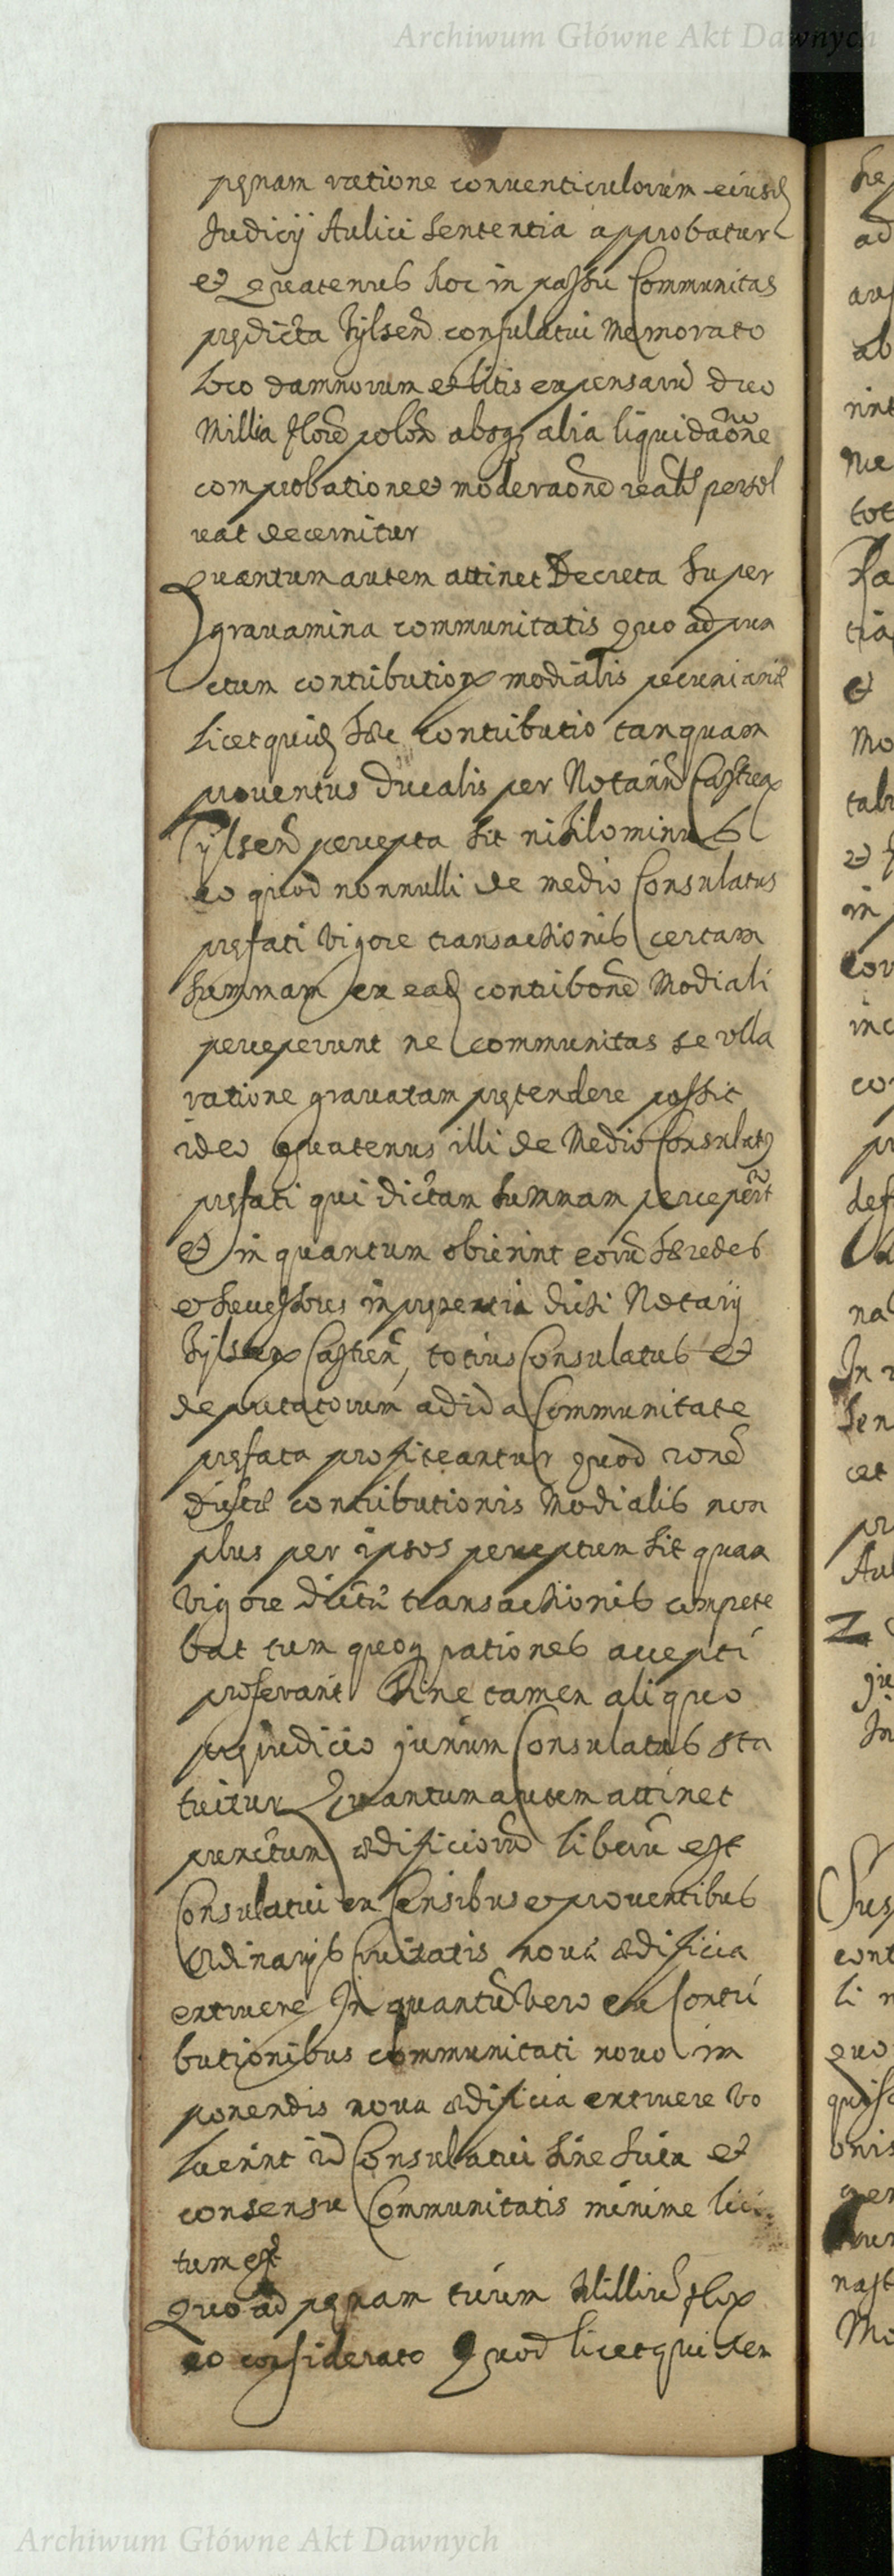 Archiwum Główne Akt Dawnych
pęnam ratione conventiculorum eiusd
Judicij Aulici sententia approbatur
et quatenus hoc in passu Communitas
prędicta Tylsen consulatui memorato
loco damnorum et litis expensarū duo
Millia flore polon absq alia liquidaōne
comprobatione et moderaōne realr persol
uat decernitur
Quantum autem attinet Decreta super
gravamina communitatis Quo ad pun
ctum contribution modialis pecuniariæ
Licet quid hæc contributio tanquam
proventus Ducalis per Notariū Castren
Tylsen percepta sit nihilominus
eo quod nonnulli de medio Consulatus
pręfati vigore transactionis certam
summam ex ead contribōne Modiali
perceperunt ne communitas se ulla
ratione gravatam prętendere possit
ideo quatenus illi de Medio Consulatq
pręfati qui dictam summam perceperūt
et in quantum obierint eorū hæredes
et successores in pręsentia dicti Notarij
Tylsen Castren, totius Consulatus et
deputatorum ad id a Communitate
pręfata profiteantur quod rone
dictæ contributionis Modialis non
plus per ipsos perceptum sit quam
vigore dictæ transactionis compete
bat tum quoq rationes accepti
proferant sine tamen aliquo
pręjudicio jurium Consulatus sta
tuitur Quantum autem attinet
punctum ædificiorū liberū est
Consulatui ex Censibus et proventibus
Ordinarijs Civitatis nova ædificia
extruere In quantū vero ex Contri
butionibus communitati novo im
ponendis nova ædificia extruere vo
luerint id Consulatui sine scitu et
consensu Communitatis minime lici
tum est
Quo ad pęnam trium Milliū flor
eo considerato Quod licet quidem
Archiwum Główne Akt Dawnych